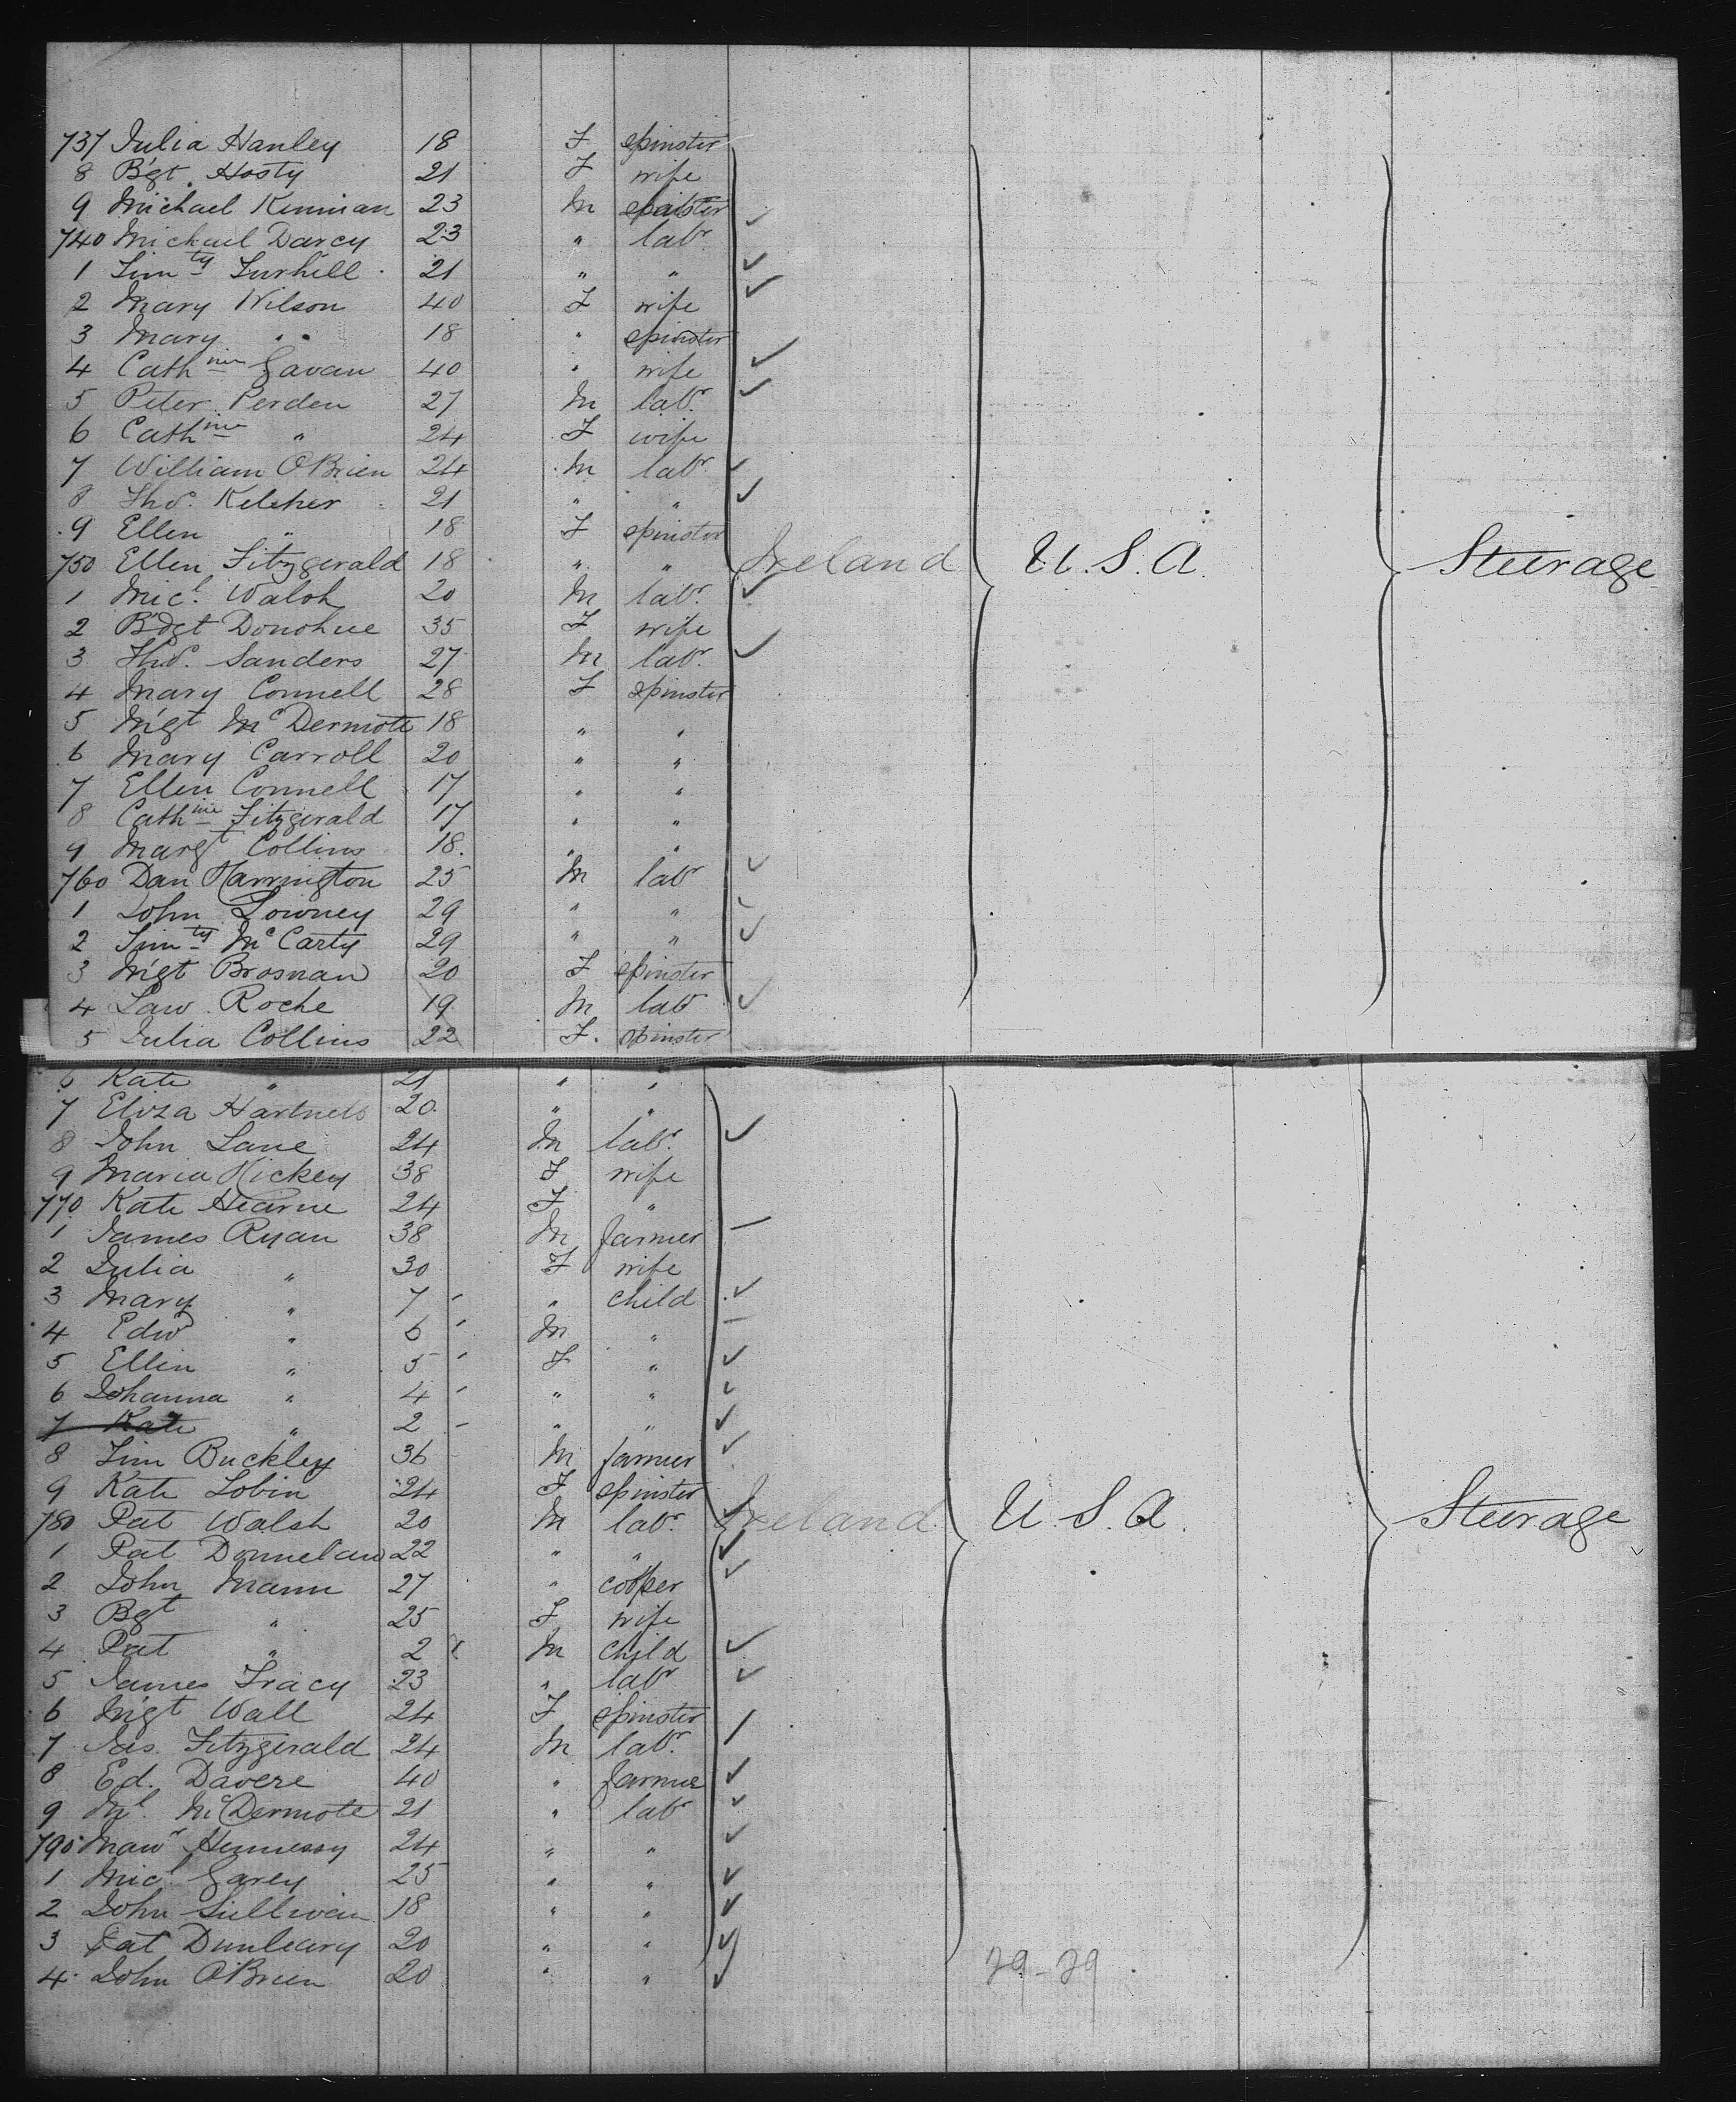 737 Julia Hanley 18 F spinster
8 Bgt. Hosty 21 F wife
9 Michael Kinnian 23 M
740 Michael Darcy 23 " labr
1 Timty Turhill 21 " "
2 Mary Wilson 40 F wife
3 Mary " 18 " spinster
4 Cathine Gavan 40 " wife
5 Peter Perden 27 M labr.
6 Cathine " 24 F wife
7 William O'Brien 24 M labr
8 Thos. Keleher 21 " "
9 Ellen " 18 F spinster
750 Ellen Fitzgerald 18 " " Ireland U.S.A. Steerage
1 Micl. Walsh 20 M labr.
2 Bdgt Donohue 35 F wife
3 Thos. Sanders 27 M labr.
4 Mary Connell 28 F spinster
5 Mgt McDermott 18 " "
6 Mary Carroll 20 " "
7 Ellen Connell 17 " "
8 Cathine Fitzgerald 17 " "
9 Margt Collins 18. " "
760 Dan Harrington 25 M labr
1 John Lowney 29 " "
2 Timty McCarty 29 " "
3 Mgt Brosnan 20 F spinster
4 Law. Roche 19 M labr
5 Julia Collins 22 F. spinster
6 Kate " 21 " "
7 Eliza Hartnett 20 " "
8 John Lane 24 M labr.
9 Maria Hickey 38 F wife
770 Kate Hearne 24 F "
1 James Ryan 38 M farmer
2 Julia " 30 F wife
3 Mary " 7 " child
4 Edwd " 6 M "
5 Ellen " 5 F "
6 Johanna " 4 " "
7 Kate " 2 " "
8 Tim Buckley 36 M farmer
9 Kate Tobin 24 F spinster
780 Pat Walsh 20 M labr. Ireland U.S.A. Steerage
1 Pat Donnelan 22 " "
2 John Mann 27 " cooper
3 Bgt " 25 F wife
4 Pat " 2 M child
5 James Tracy 23 " labr
6 Mgt Wall 24 F spinster
7 Jas. Fitzgerald 24 M labr.
8 Ed. Davere 40 " farmer
9 Ml. McDermott 21 " labr
790 Maur Hennessy 24 " "
1 Micl Garey 25 " "
2 John Sullivan 18 " "
3 Pat Dunleary 20 " "
4 John O'Brien 20 " "
79-79